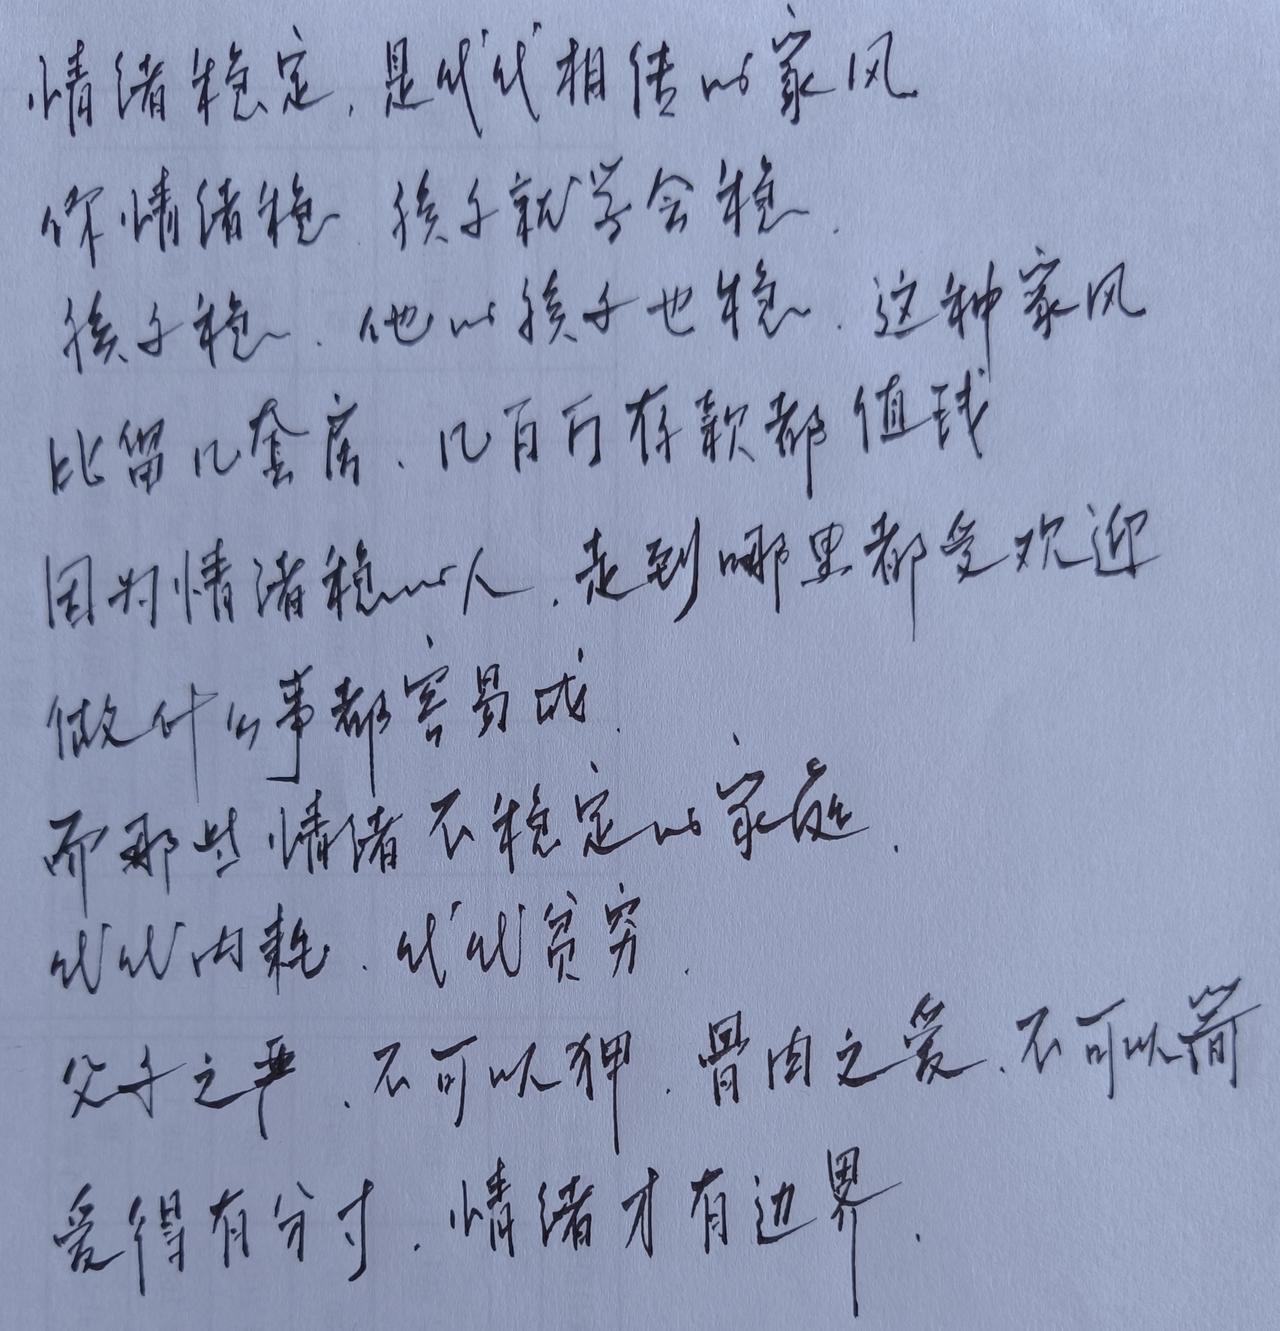 情绪稳定，是代代相传的家风
你情绪稳，孩子就学会稳．
孩子稳．他的孩子也稳．这种家风
比留几套房．几百万存款都值钱
因为情绪稳的人．走到哪里都受欢迎
做什么事都容易成．
而那些情绪不稳定的家庭．
代代内耗．代代贫穷．
父子之严．不可以狎．骨肉之爱．不可以简
爱得有分寸．情绪才有边界．